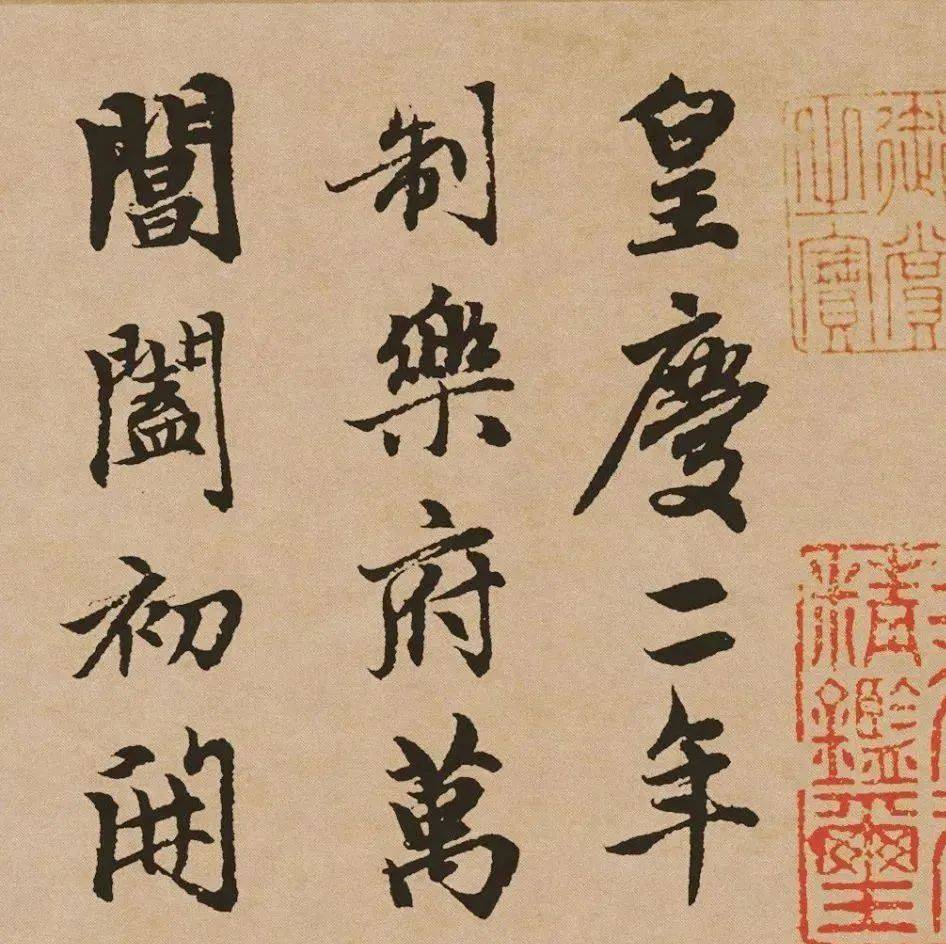 御賞
之寶
精鑑璽
皇慶二年
制樂府萬
閶闔初開